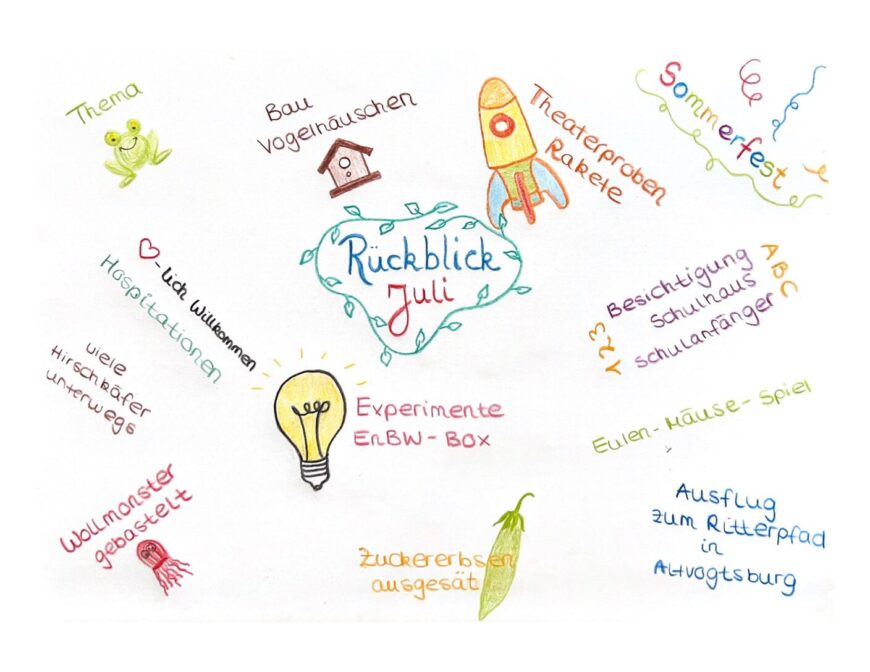 Thema
Bau
Vogelhäuschen
Theaterproben
Rakete
Sommerfest
Rückblick
Juli
♡-lich Willkommen
Hospitationen
ABC
Besichtigung
Schulhaus
Schulanfänger
123
viele
Hirschkäfer
unterwegs
Experimente
EnBW-Box
Eulen-Mäuse-Spiel
Wollmonster
gebastelt
Zuckererbsen
ausgesät
Ausflug
zum Ritterpfad
in
Altvogtsburg